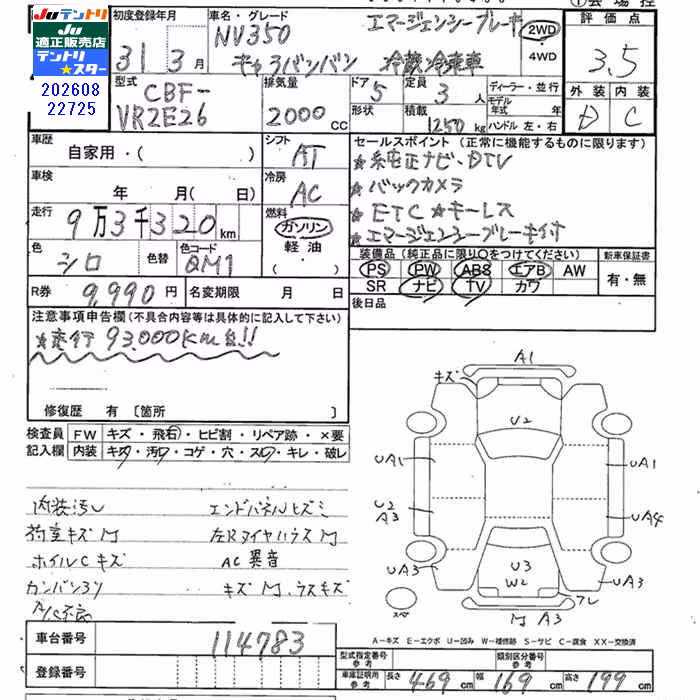 JUテントリ
JU テントリ
適正販売店
テントリ★スター
202608
22725
初度登録年月
31 3月
車名・グレード
NV350
キャラバンバン
エマージェンシーブレーキ
冷蔵冷凍車
2WD
4WD
評価点
3.5
外装 内装
D C
型式
CBF-
VR2E26
排気量
2000cc
ドア
5
形状
定員
3人
積載
1250kg
ディーラー・並行
モデル年式 年
ハンドル 左・右
車歴
自家用・( )
シフト
AT
車検
年 月(日)
冷房
AC
走行
9万3千320km
燃料
ガソリン
軽油
・( )
色
シロ
色替
色コード
QM1
R券
9,990円
名変期限 月 日
セールスポイント (正常に機能するものに限ります)
★純正ナビ・DTV
★バックカメラ
★ETC ★キーレス
★エマージェンシーブレーキ付
装備品 (純正品に限り○をつけてください)
PS PW ABS エアB AW
SR ナビ TV カワ
新車保証書
有・無
後日品
注意事項申告欄(不具合内容等は具体的に記入して下さい)
★走行93,000Km台!!
修復歴 有 〔箇所 〕
検査員
記入欄
FW キズ・飛石・ヒビ割・リペア跡・×要
内装 キズ・汚レ・コゲ・穴・スレ・キレ・破レ
内装汚レ
荷室キズM
ホイルCキズ
カンバンヌリ
A/C不良
エンドパネルヒズミ
左Rタイヤハウス M
AC異音
キズ M、ラスキズ
A1
キズ
U2
UA1
UA1
U2
A3
UA4
UA3
U3
W2
UA3
フレ
M A3
スペ
A-キズ E-エクボ U-凹み W-補修跡 S-サビ C-腐食 XX-交換済
車台番号
114783
登録番号
型式指定番号
参考
類別区分番号
参考
車庫証明用
参考
長さ 469cm 幅 169cm 高さ 199cm